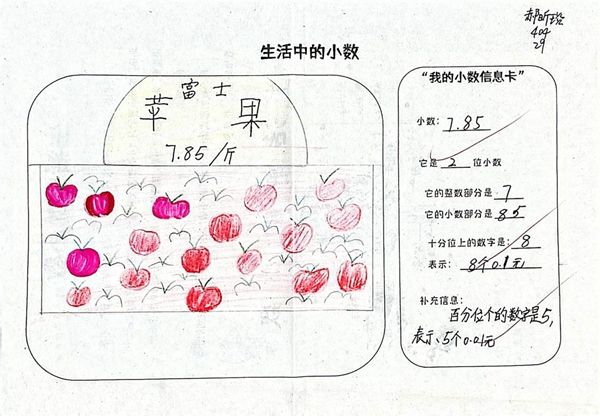 404
29
生活中的小数
富士
苹果
7.85/斤
“我的小数信息卡”
小数：7.85
它是 2 位小数
它的整数部分是 7
它的小数部分是 85
十分位上的数字是：8
表示：8个0.1元
补充信息：
百分位个的数字是5，
表示、5个0.01元